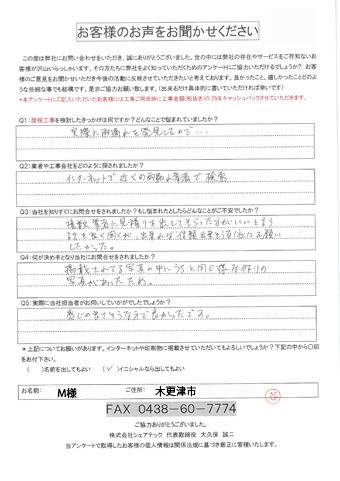 お客様のお声をお聞かせください
この度は弊社にお問い合わせをいただき、誠にありがとうございました。世の中には弊社の存在やサービスをご存知ないお
客様が沢山いらっしゃいます。その方たちに弊社をよく知っていただくためのアンケートにご協力いただけるでしょうか？ お客
様のご意見をお聞かせいただき今後の活動に反映させていただきたいと考えております。良かったこと、嬉しかったことどのよ
うな些細な事でも結構です。是非ご協力お願い致します。（出来るだけ具体的に書いていただければ幸いです）
*本アンケートにご記入いただいたお客様には工事ご用命時に工事金額（税抜き）の2%をキャッシュバックさせていただきます。
Q1：屋根工事を検討したきっかけは何ですか？どんなことで悩まれていましたか？
実際に雨漏れを発見したので…
Q2：業者や工事会社をどのように探されましたか？
インターネットで近くの雨漏れ業者で検索
Q3：当社を知りすぐにお問合せをされましたか？もし悩まれたとしたらどんなことがご不安でしたか？
複数業者に見積りを出してもらった方がいいという
話を良く聞くが、出来れば信頼出来る1社にお願い
したかった。
Q4：何が決め手となり当社にお問合せをされましたか？
掲載されてる写真の中にうちと同じ様な作りの
写真があったため。
Q5：実際に当社担当者がお伺いしていかがでしたでしょうか？
感じの良さそうな方で良かったです。
＊上記についてお願いがあります。インターネットや印刷物に掲載させていただいてもよろしいでしょうか？下記の中から〇印
をお付下さい。
（ ）名前を出してもよい （✓）イニシャルなら出してもよい
お名前： M様 ご住所： 木更津市
FAX 0438－60－7774
ご協力ありがとうございました。
株式会社シェアテック 代表取締役 大久保 誠二
当アンケートで取得したお客様の個人情報は関係法規に基づき厳正に管理いたします。